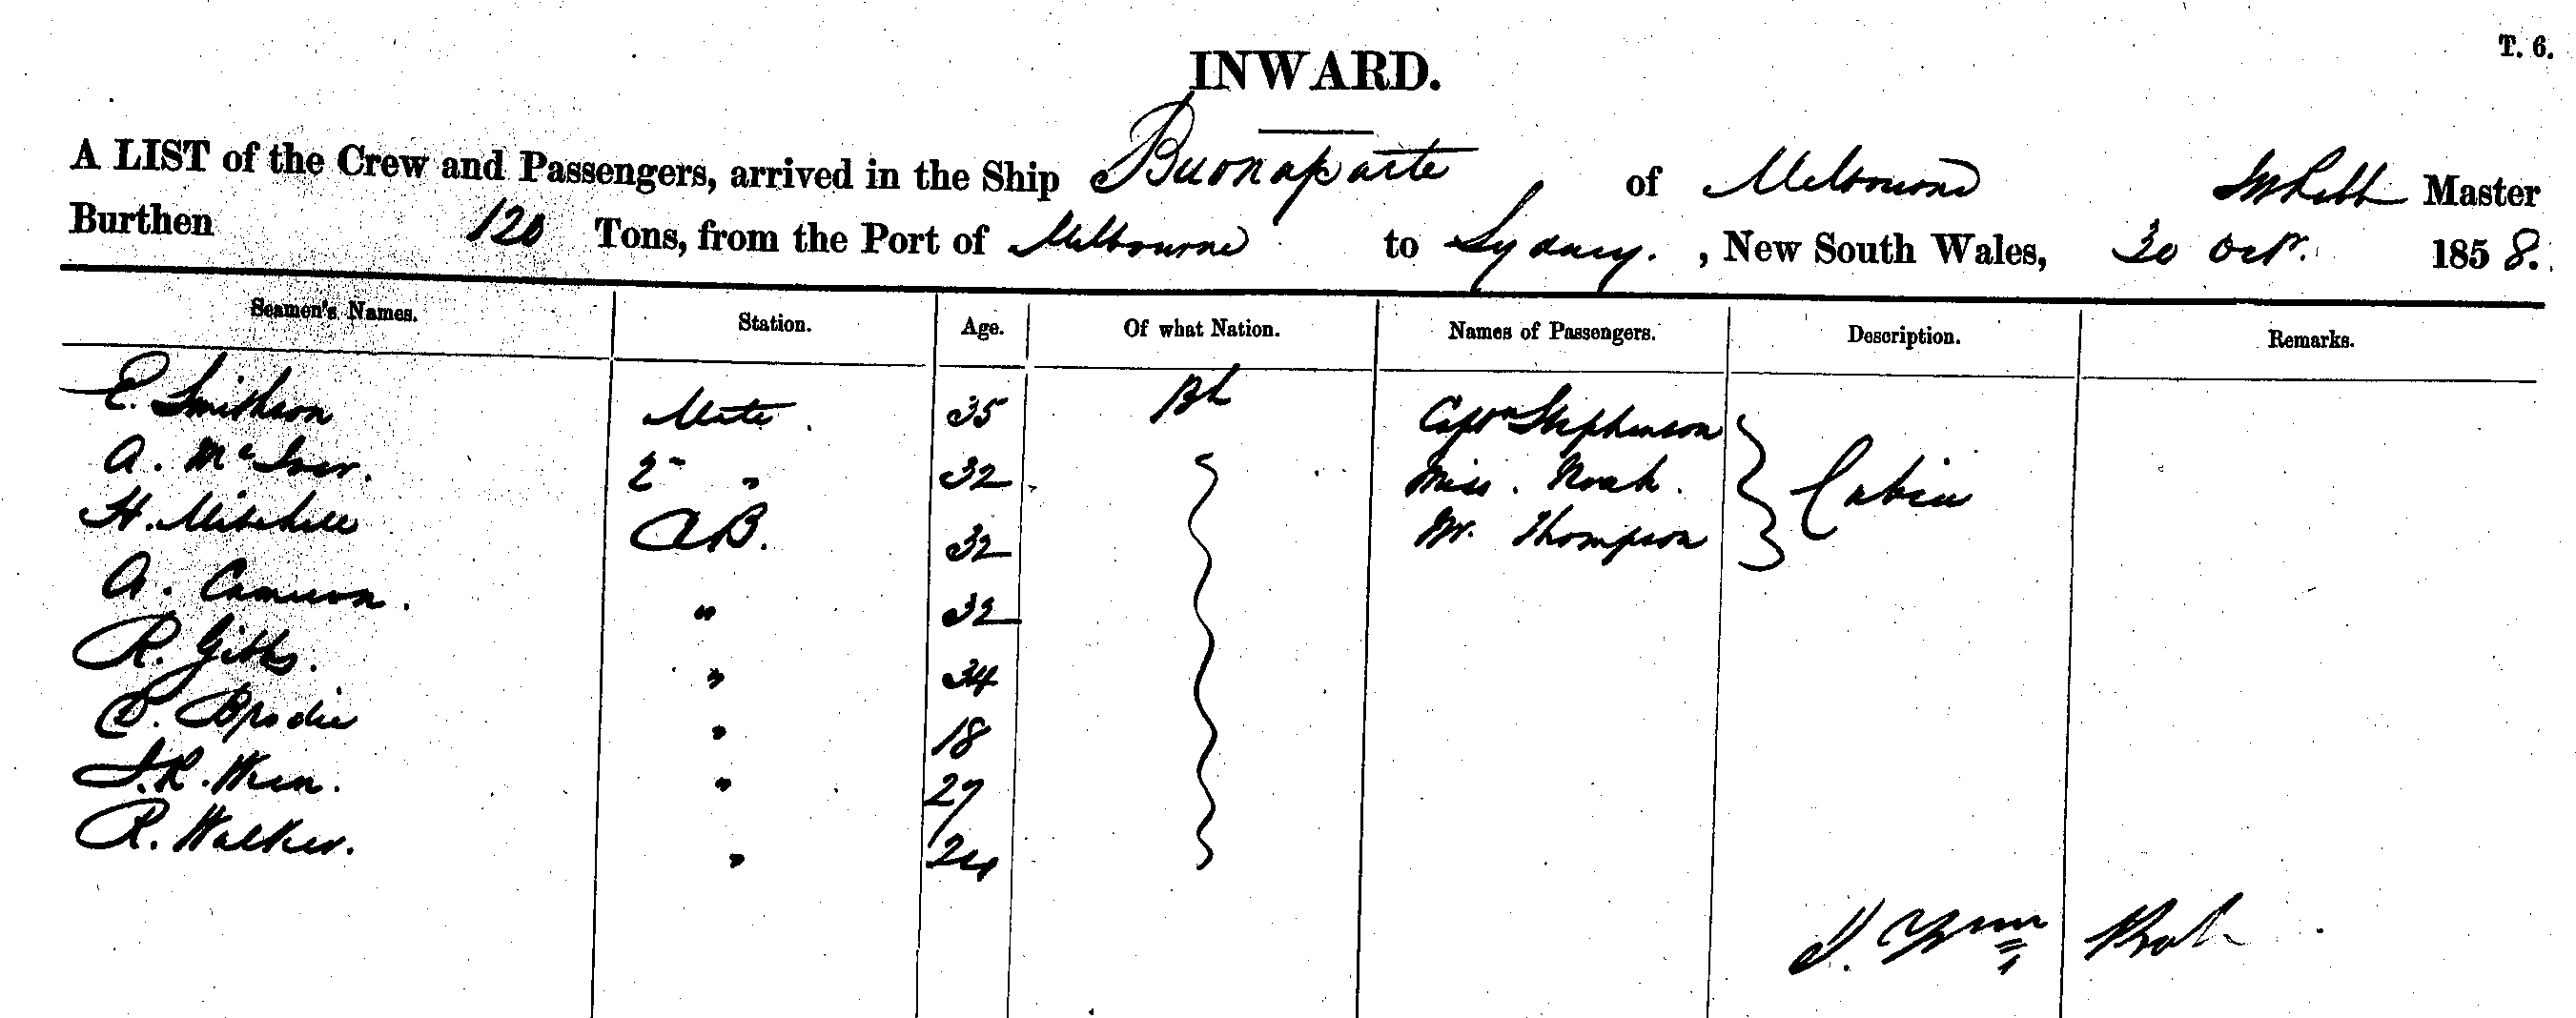 T. 6.
INWARD.
A LIST of the Crew and Passengers, arrived in the Ship Buonaparte of Melbourne Master
Burthen 120 Tons, from the Port of Melbourne to Sydney. , New South Wales, 30 Octr. 1858.
Seamen's Names. Station. Age. Of what Nation. Names of Passengers. Description. Remarks.
E. Smithson Mate. 35 Bh Captn Stephenson
A. McIver. 2 " 32 Miss. Noah. Cabin
H. Mitchell AB. 32 Mr. Thompson
A. Cameron. " 32
R. Gibbs. " 34
Brodie " 18
J.R. Wren. " 27
R. Walker. " 24
J. Wm